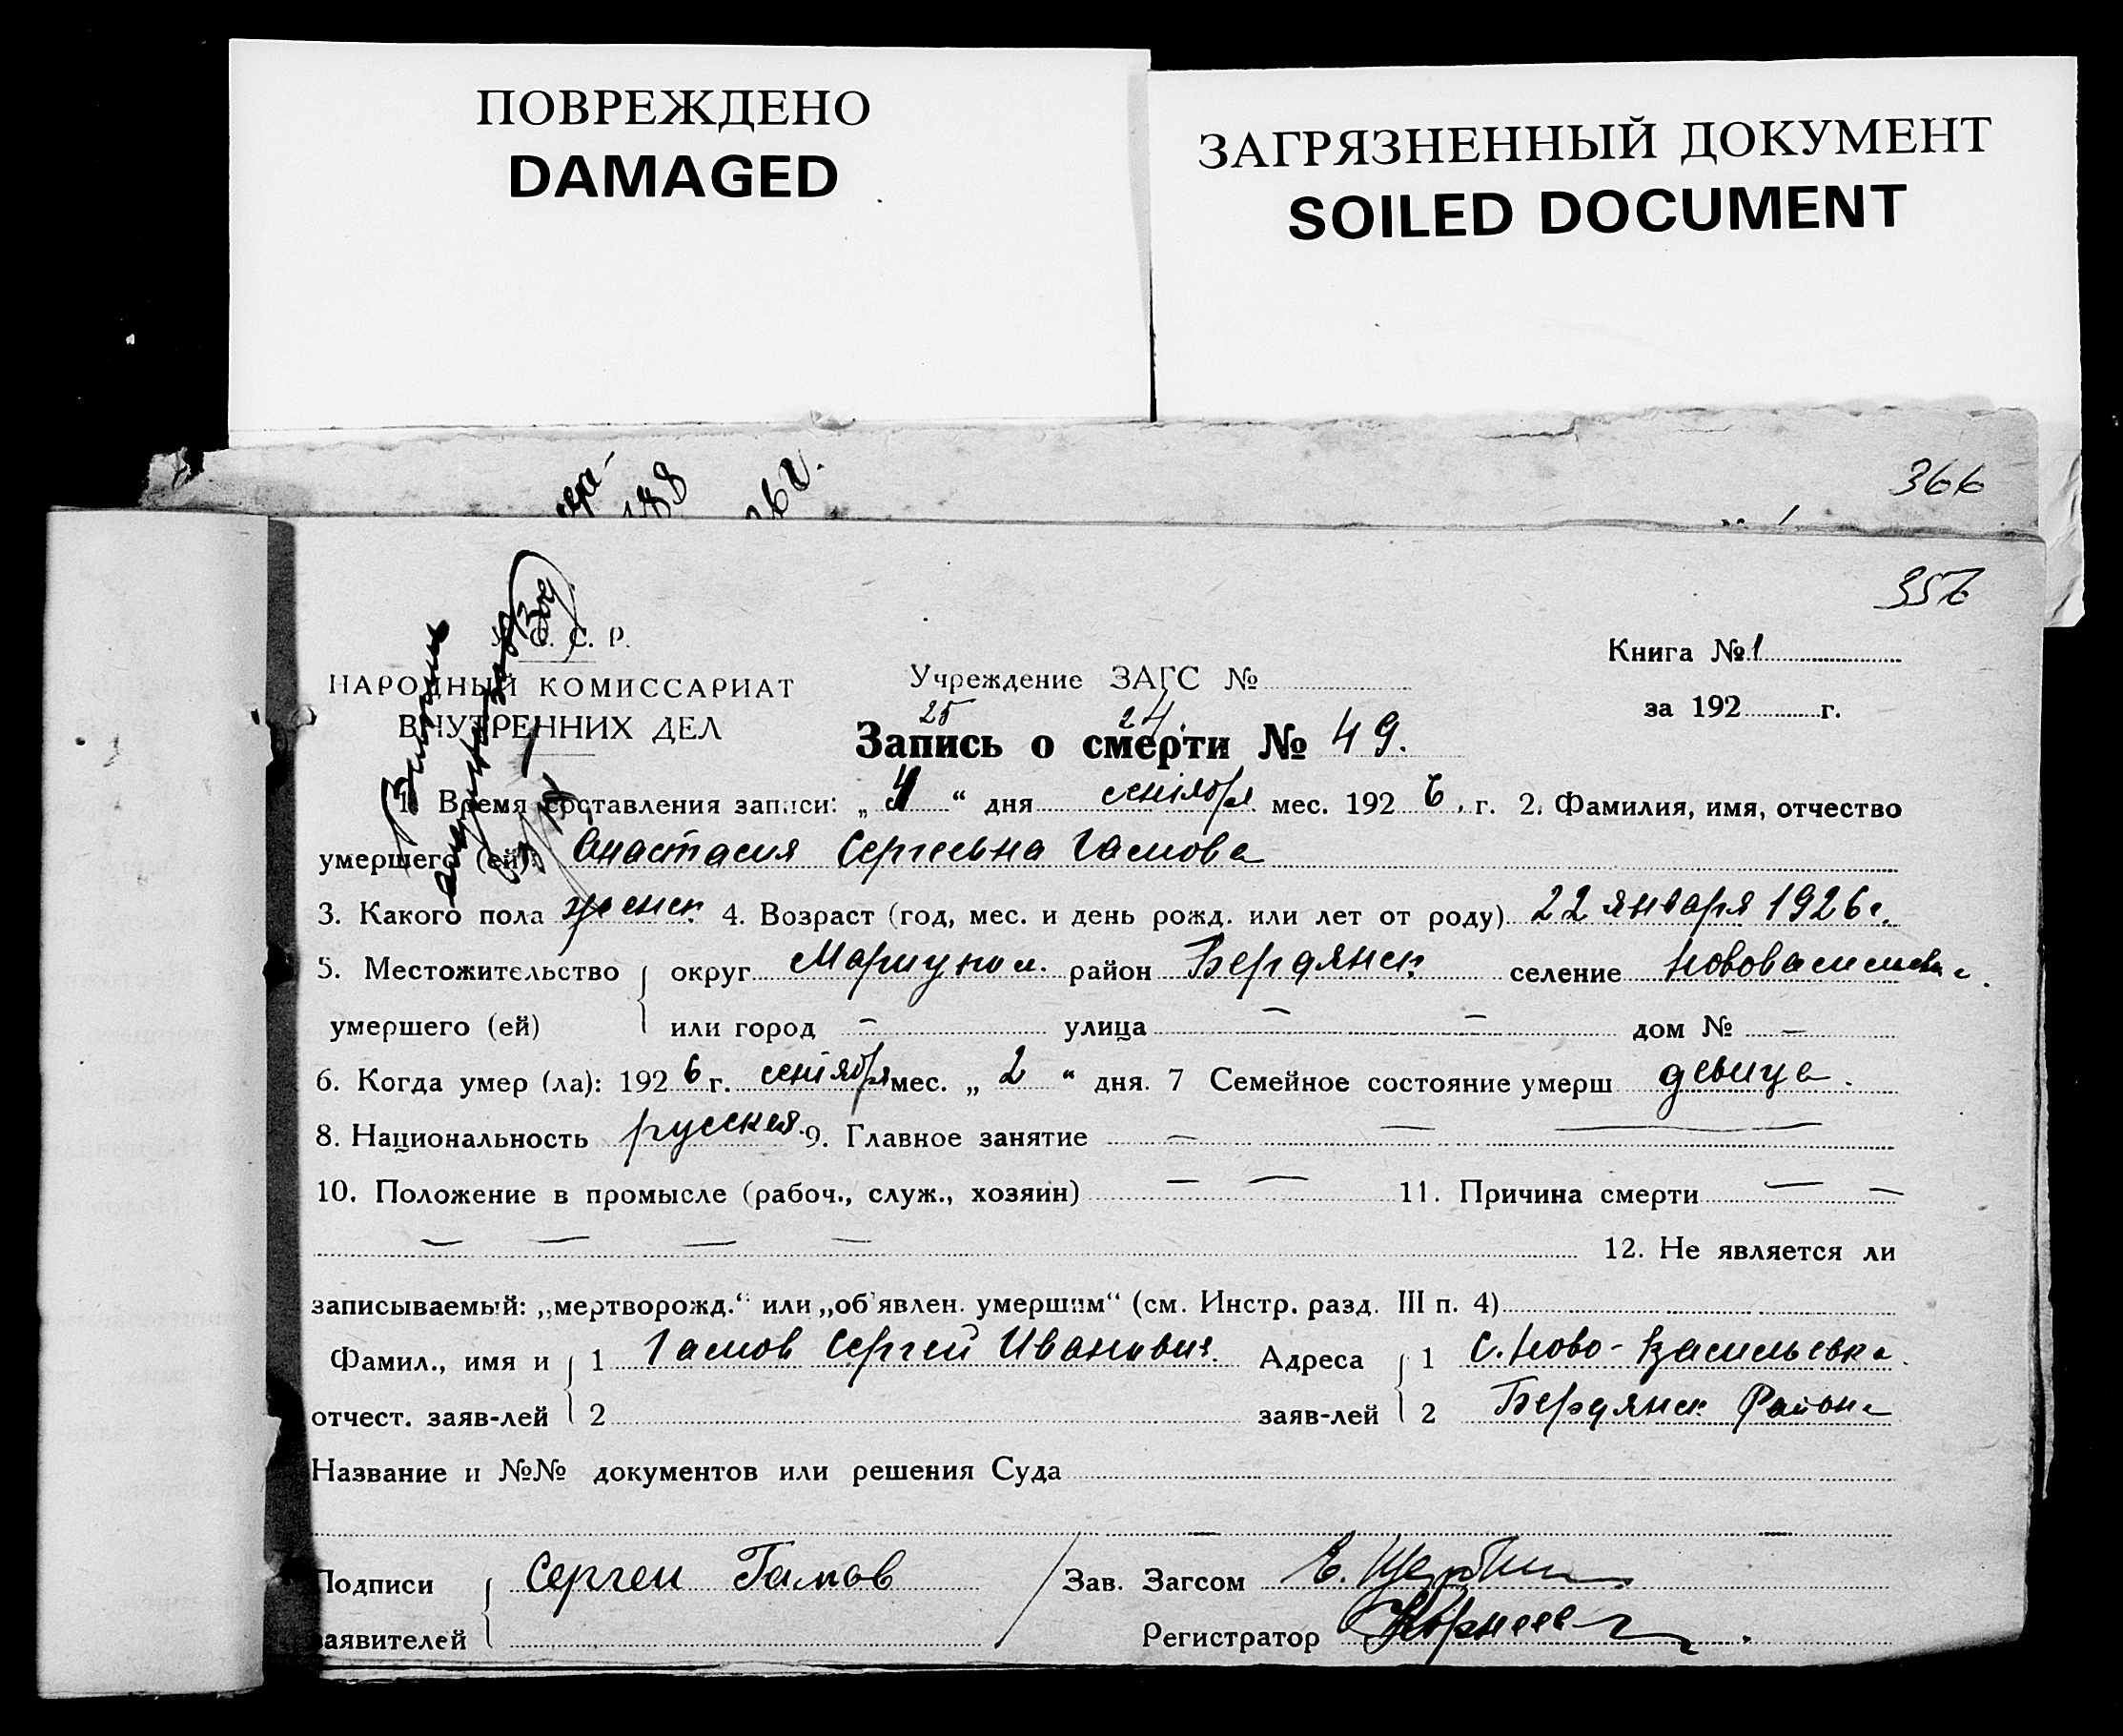 ПОВРЕЖДЕНО
DAMAGED
ЗАГРЯЗНЕННЫЙ ДОКУМЕНТ
SOILED DOCUMENT
366
188
357
С. С. Р.
НАРОДНЫЙ КОМИССАРИАТ
ВНУТРЕННИХ ДЕЛ
Учреждение ЗАГС №
Книга № 1
за 192 г.
25 24.
Запись о смерти № 49.
1. Время составления записи: „ 4 “ дня сентября мес. 192 6. г. 2. Фамилия, имя, отчество
умершего (ей): Анастасия Сергеевна Гамова
3. Какого пола женск. 4. Возраст (год, мес. и день рожд. или лет от роду) 22 января 1926 г.
5. Местожительство округ Мариупол. район Бердянск. селение Нововасильевка.
умершего (ей) или город — улица — — дом № —
6. Когда умер (ла): 192 6 г. сентября мес. „ 2 “ дня. 7 Семейное состояние умерш девица.
8. Национальность русская. 9. Главное занятие — — —
10. Положение в промысле (рабоч., служ., хозяин) — — 11. Причина смерти — —
— — — — 12. Не является ли
записываемый: „мертворожд.“ или „об'явлен. умершим“ (см. Инстр. разд. III п. 4)
Фамил., имя и 1 Гамов Сергей Иванович. Адреса 1 с. Ново-Васильевка.
отчест. заяв-лей 2 заяв-лей 2 Бердянск. Района
Название и №№ документов или решения Суда
Подписи Сергей Гамов Зав. Загсом
заявителей Регистратор